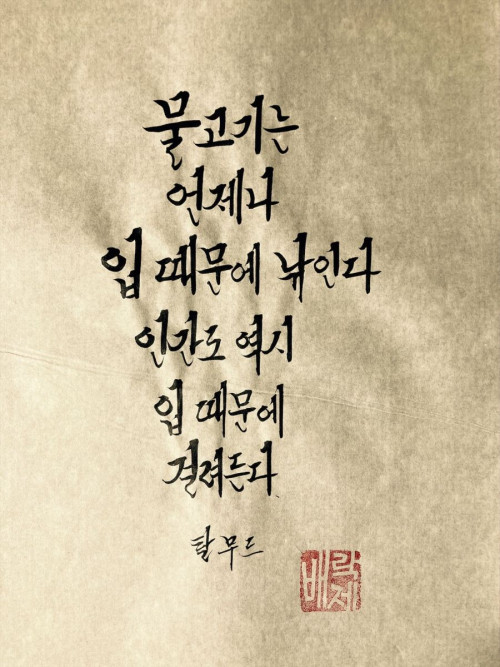 물고기는
언제나
입 때문에 낚인다
인간도 역시
입 때문에
걸려든다
탈무드
배락제